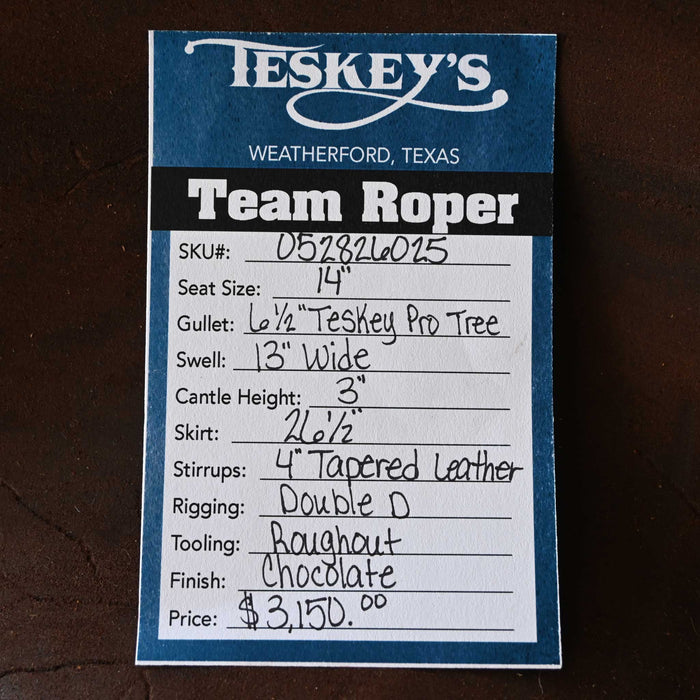 TESKEY'S
WEATHERFORD, TEXAS
Team Roper
SKU#: 052826025
Seat Size: 14"
Gullet: 6 1/2" Teskey Pro Tree
Swell: 13" Wide
Cantle Height: 3"
Skirt: 26 1/2"
Stirrups: 4" Tapered Leather
Rigging: Double D
Tooling: Roughout
Finish: Chocolate
Price: $3,150.00